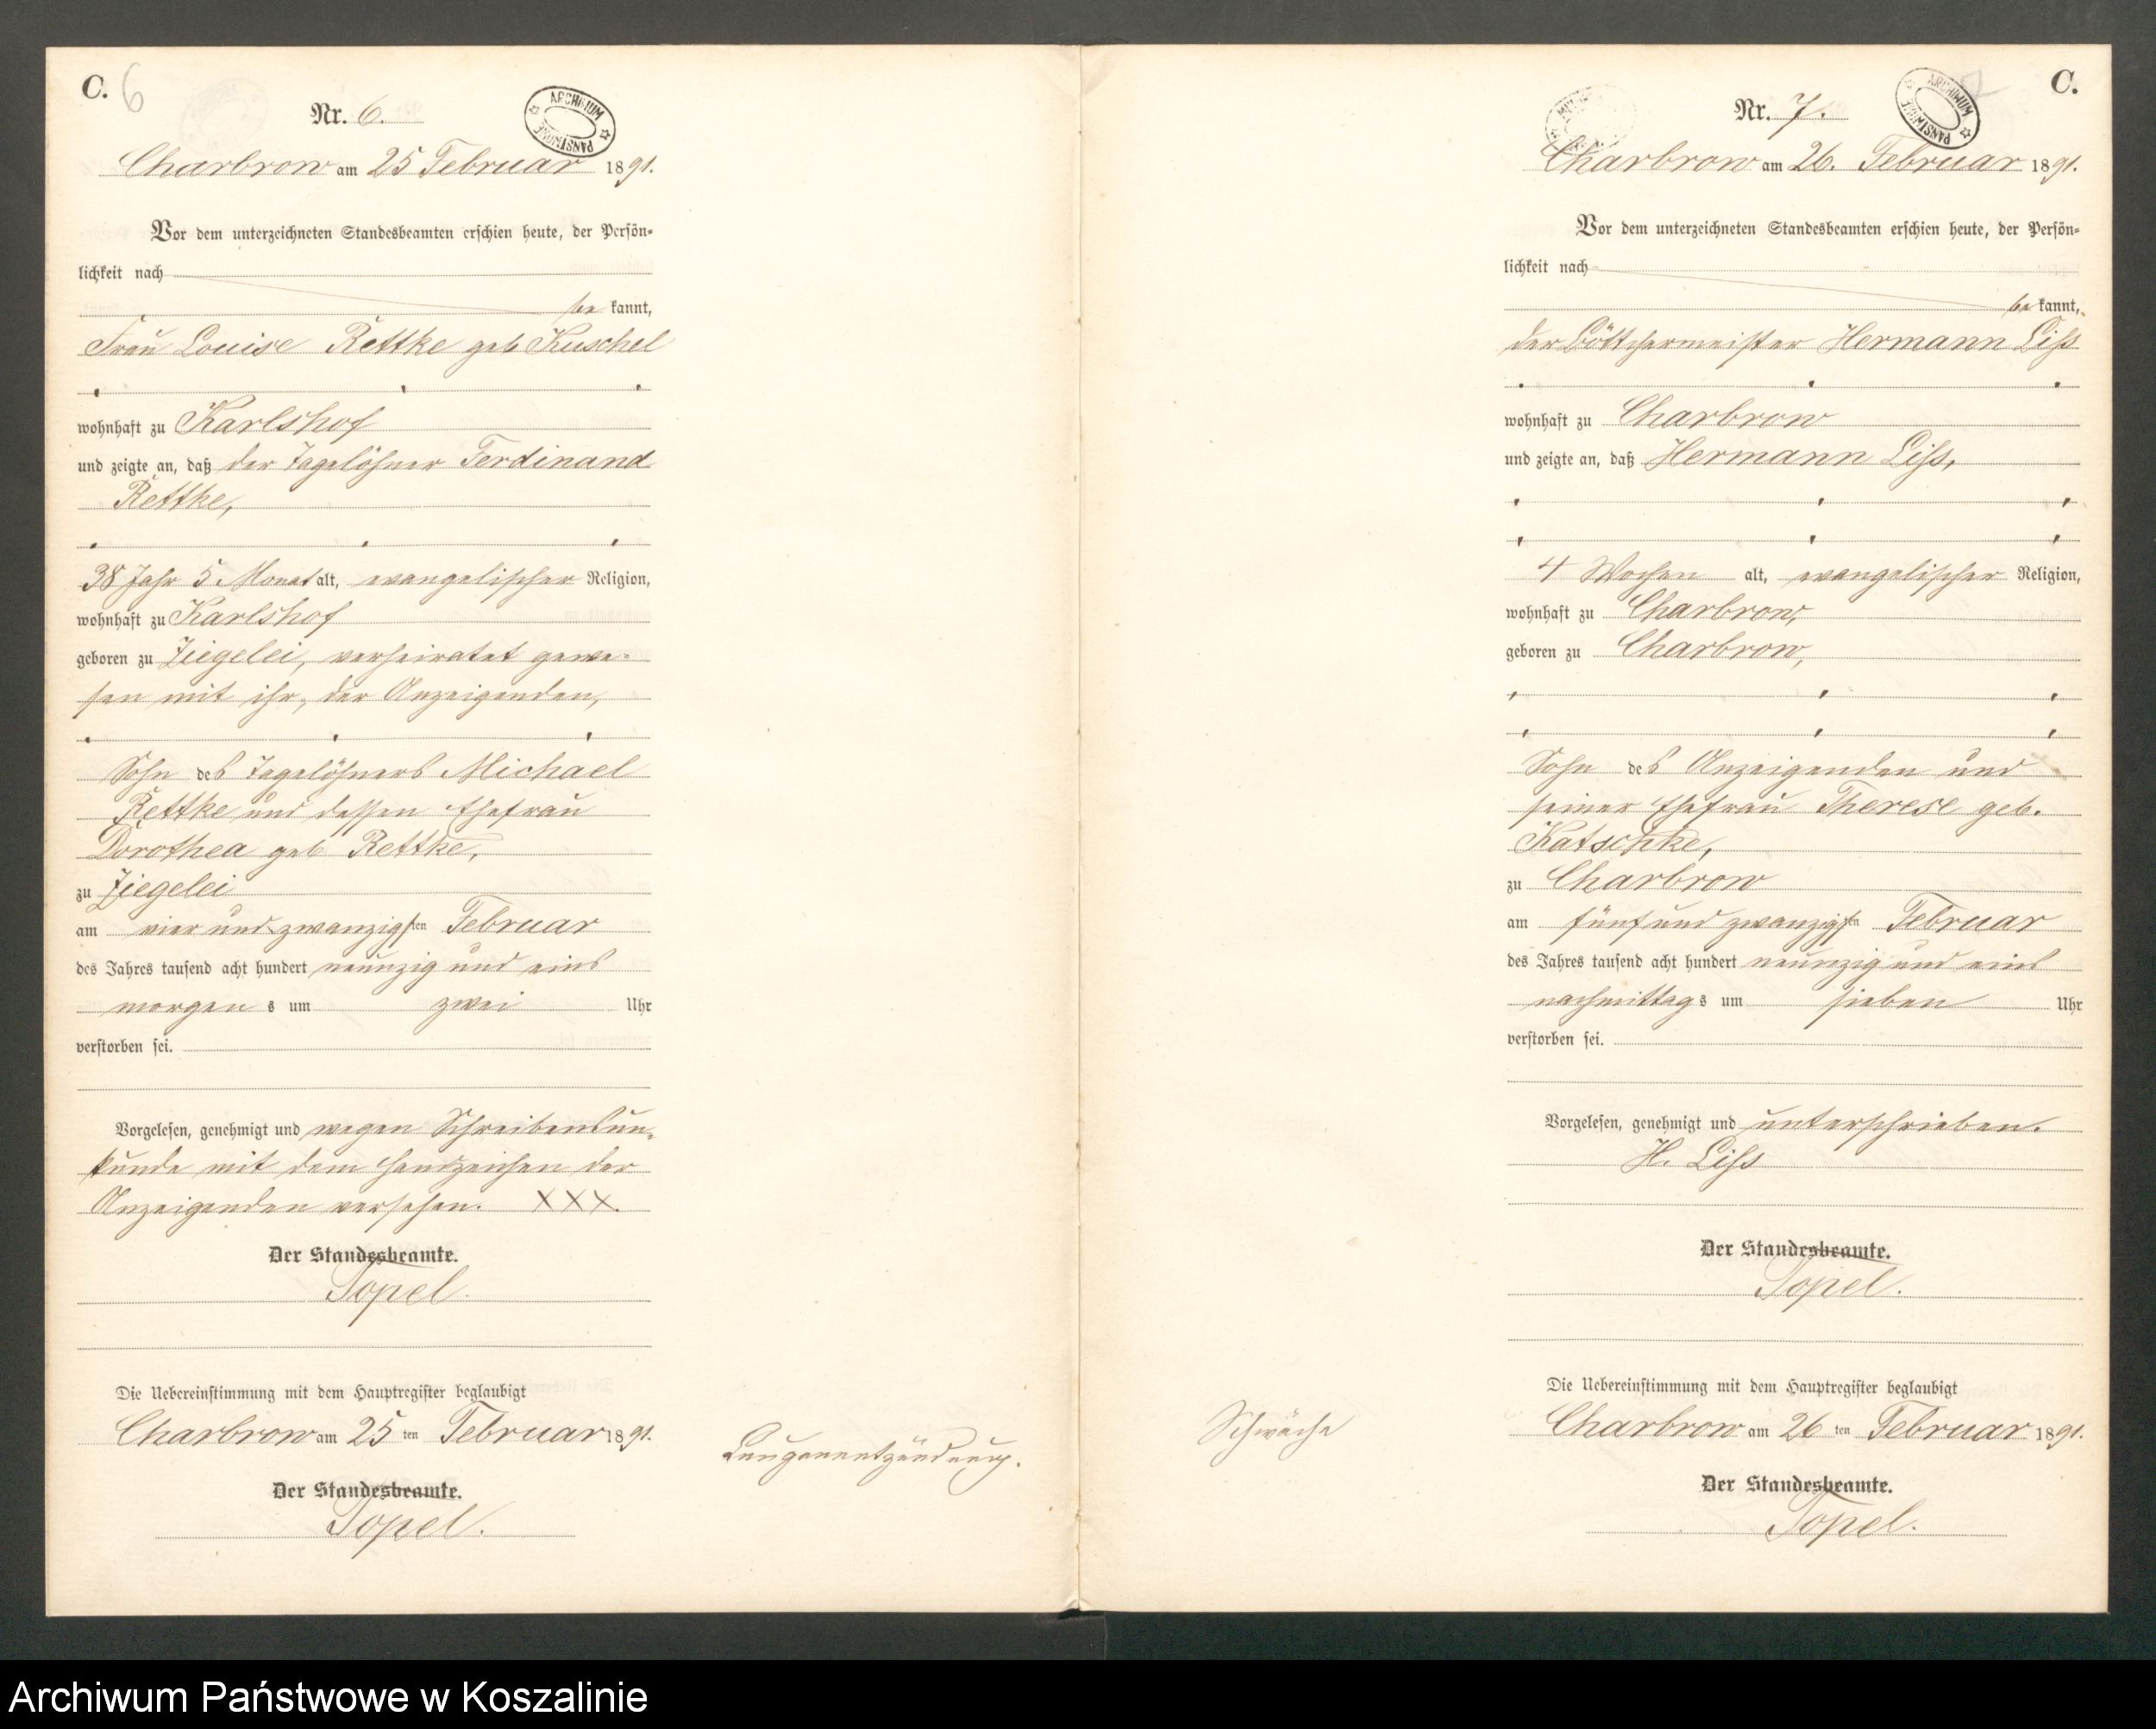 C. 6
Nr. 6.
ARCHIWUM PAŃSTWOWE
Charbrow am 25 Februar 1891.
Vor dem unterzeichneten Standesbeamten erschien heute, der Persön-
lichkeit nach
be kannt,
Frau Louise Rettke geb Kuschel
wohnhaft zu Karlshof
und zeigte an, daß der Tagelöhner Ferdinand
Rettke,
38 Jahr 5 Monat alt, evangelischer Religion,
wohnhaft zu Karlshof
geboren zu Ziegelei, verheiratet gewe-
sen mit ihr, der Anzeigenden,
Sohn des Tagelöhners Michael
Rettke und dessen Ehefrau
Dorothea geb Rettke,
zu Ziegelei
am vier und zwanzigsten Februar
des Jahres tausend acht hundert neunzig und eins
morgens um zwei Uhr
verstorben sei.
Vorgelesen, genehmigt und wegen Schreibensun-
kunde mit dem Handzeichen der
Anzeigenden versehen. XXX.
Der Standesbeamte.
Topel.
Die Uebereinstimmung mit dem Hauptregister beglaubigt
Charbrow am 25 ten Februar 1891.
Der Standesbeamte.
Topel.
Lungenentzündung.
C.
Nr. 7.
ARCHIWUM PAŃSTWOWE
Charbrow am 26. Februar 1891.
Vor dem unterzeichneten Standesbeamten erschien heute, der Persön-
lichkeit nach
be kannt,
der Böttchermeister Hermann Liss
wohnhaft zu Charbrow
und zeigte an, daß Hermann Liss,
4 Wochen alt, evangelischer Religion,
wohnhaft zu Charbrow,
geboren zu Charbrow,
Sohn des Anzeigenden und
seiner Ehefrau Therese geb.
Katschke,
zu Charbrow
am fünf und zwanzigsten Februar
des Jahres tausend acht hundert neunzig und eins
nachmittags um sieben Uhr
verstorben sei.
Vorgelesen, genehmigt und unterschrieben.
H. Liss
Der Standesbeamte.
Topel.
Die Uebereinstimmung mit dem Hauptregister beglaubigt
Charbrow am 26 ten Februar 1891.
Der Standesbeamte.
Topel.
Schwäche
Archiwum Państwowe w Koszalinie